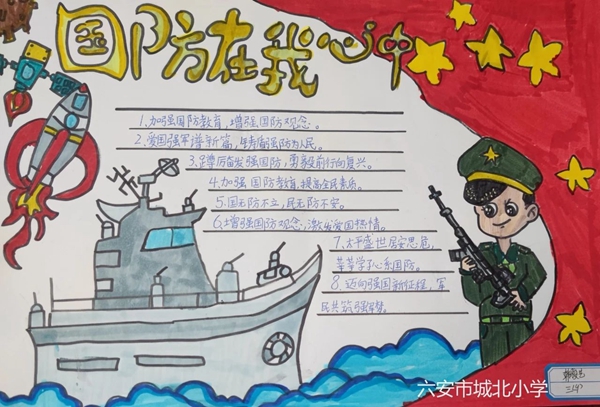 国防在我心中
1.加强国防教育,增强国防观念。
2.爱国强军谱新篇,
强防为人民。
3.踔厉奋发强国防,勇毅前行向复兴。
4.加强国防教育,提高全民素质。
5.国无防不立,民无防不安。
6.增强国防观念,激发爱国热情。
7.太平盛世居安思危,
莘莘学子心系国防。
8.迈向强国新征程,军
民共筑强军梦。
六安市城北小学